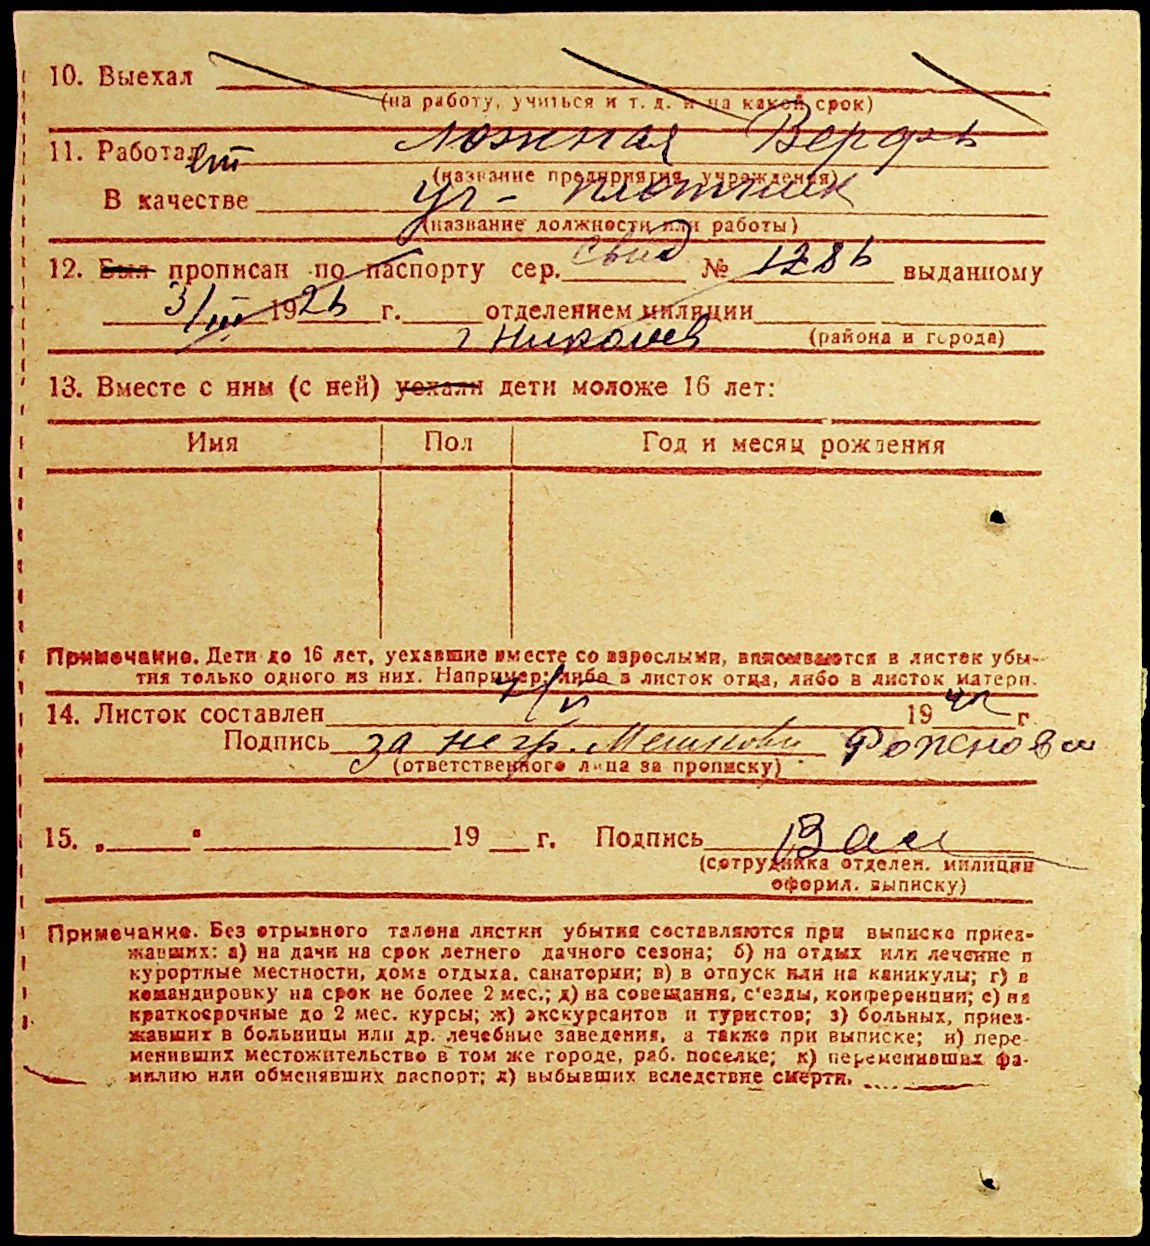 10. Выехал
(на работу, учиться и т. д. и на какой срок)
11. Работает Южная Верфь
(название предприятия, учреждения)
В качестве уч- плотник
(название должности или работы)
12. Был прописан по паспорту сер. свид № 1286 выданному
3/III 1926 г. отделением милиции
г Николаев (района и города)
13. Вместе с ним (с ней) уехали дети моложе 16 лет:
Имя Пол Год и месяц рождения
Примечание. Дети до 16 лет, уехавшие вместе со взрослыми, вписываются в листок убы-
тия только одного из них. Например: либо в листок отца, либо в листок матери.
14. Листок составлен 19 г.
Подпись за негр.
(ответственного лица за прописку)
15. „ “ 19 г. Подпись
(сотрудника отделен. милиции
оформл. выписку)
Примечание. Без отрывного талона листки убытия составляются при выписке приез-
жавших: а) на дачи на срок летнего дачного сезона; б) на отдых или лечение в
курортные местности, дома отдыха, санатории; в) в отпуск или на каникулы; г) в
командировку на срок не более 2 мес.; д) на совещания, с'езды, конференции; е) на
краткосрочные до 2 мес. курсы; ж) экскурсантов и туристов; з) больных, приез-
жавших в больницы или др. лечебные заведения, а также при выписке; и) пере-
менивших местожительство в том же городе, раб. поселке; к) переменивших фа-
милию или обменявших паспорт; л) выбывших вследствие смерти.